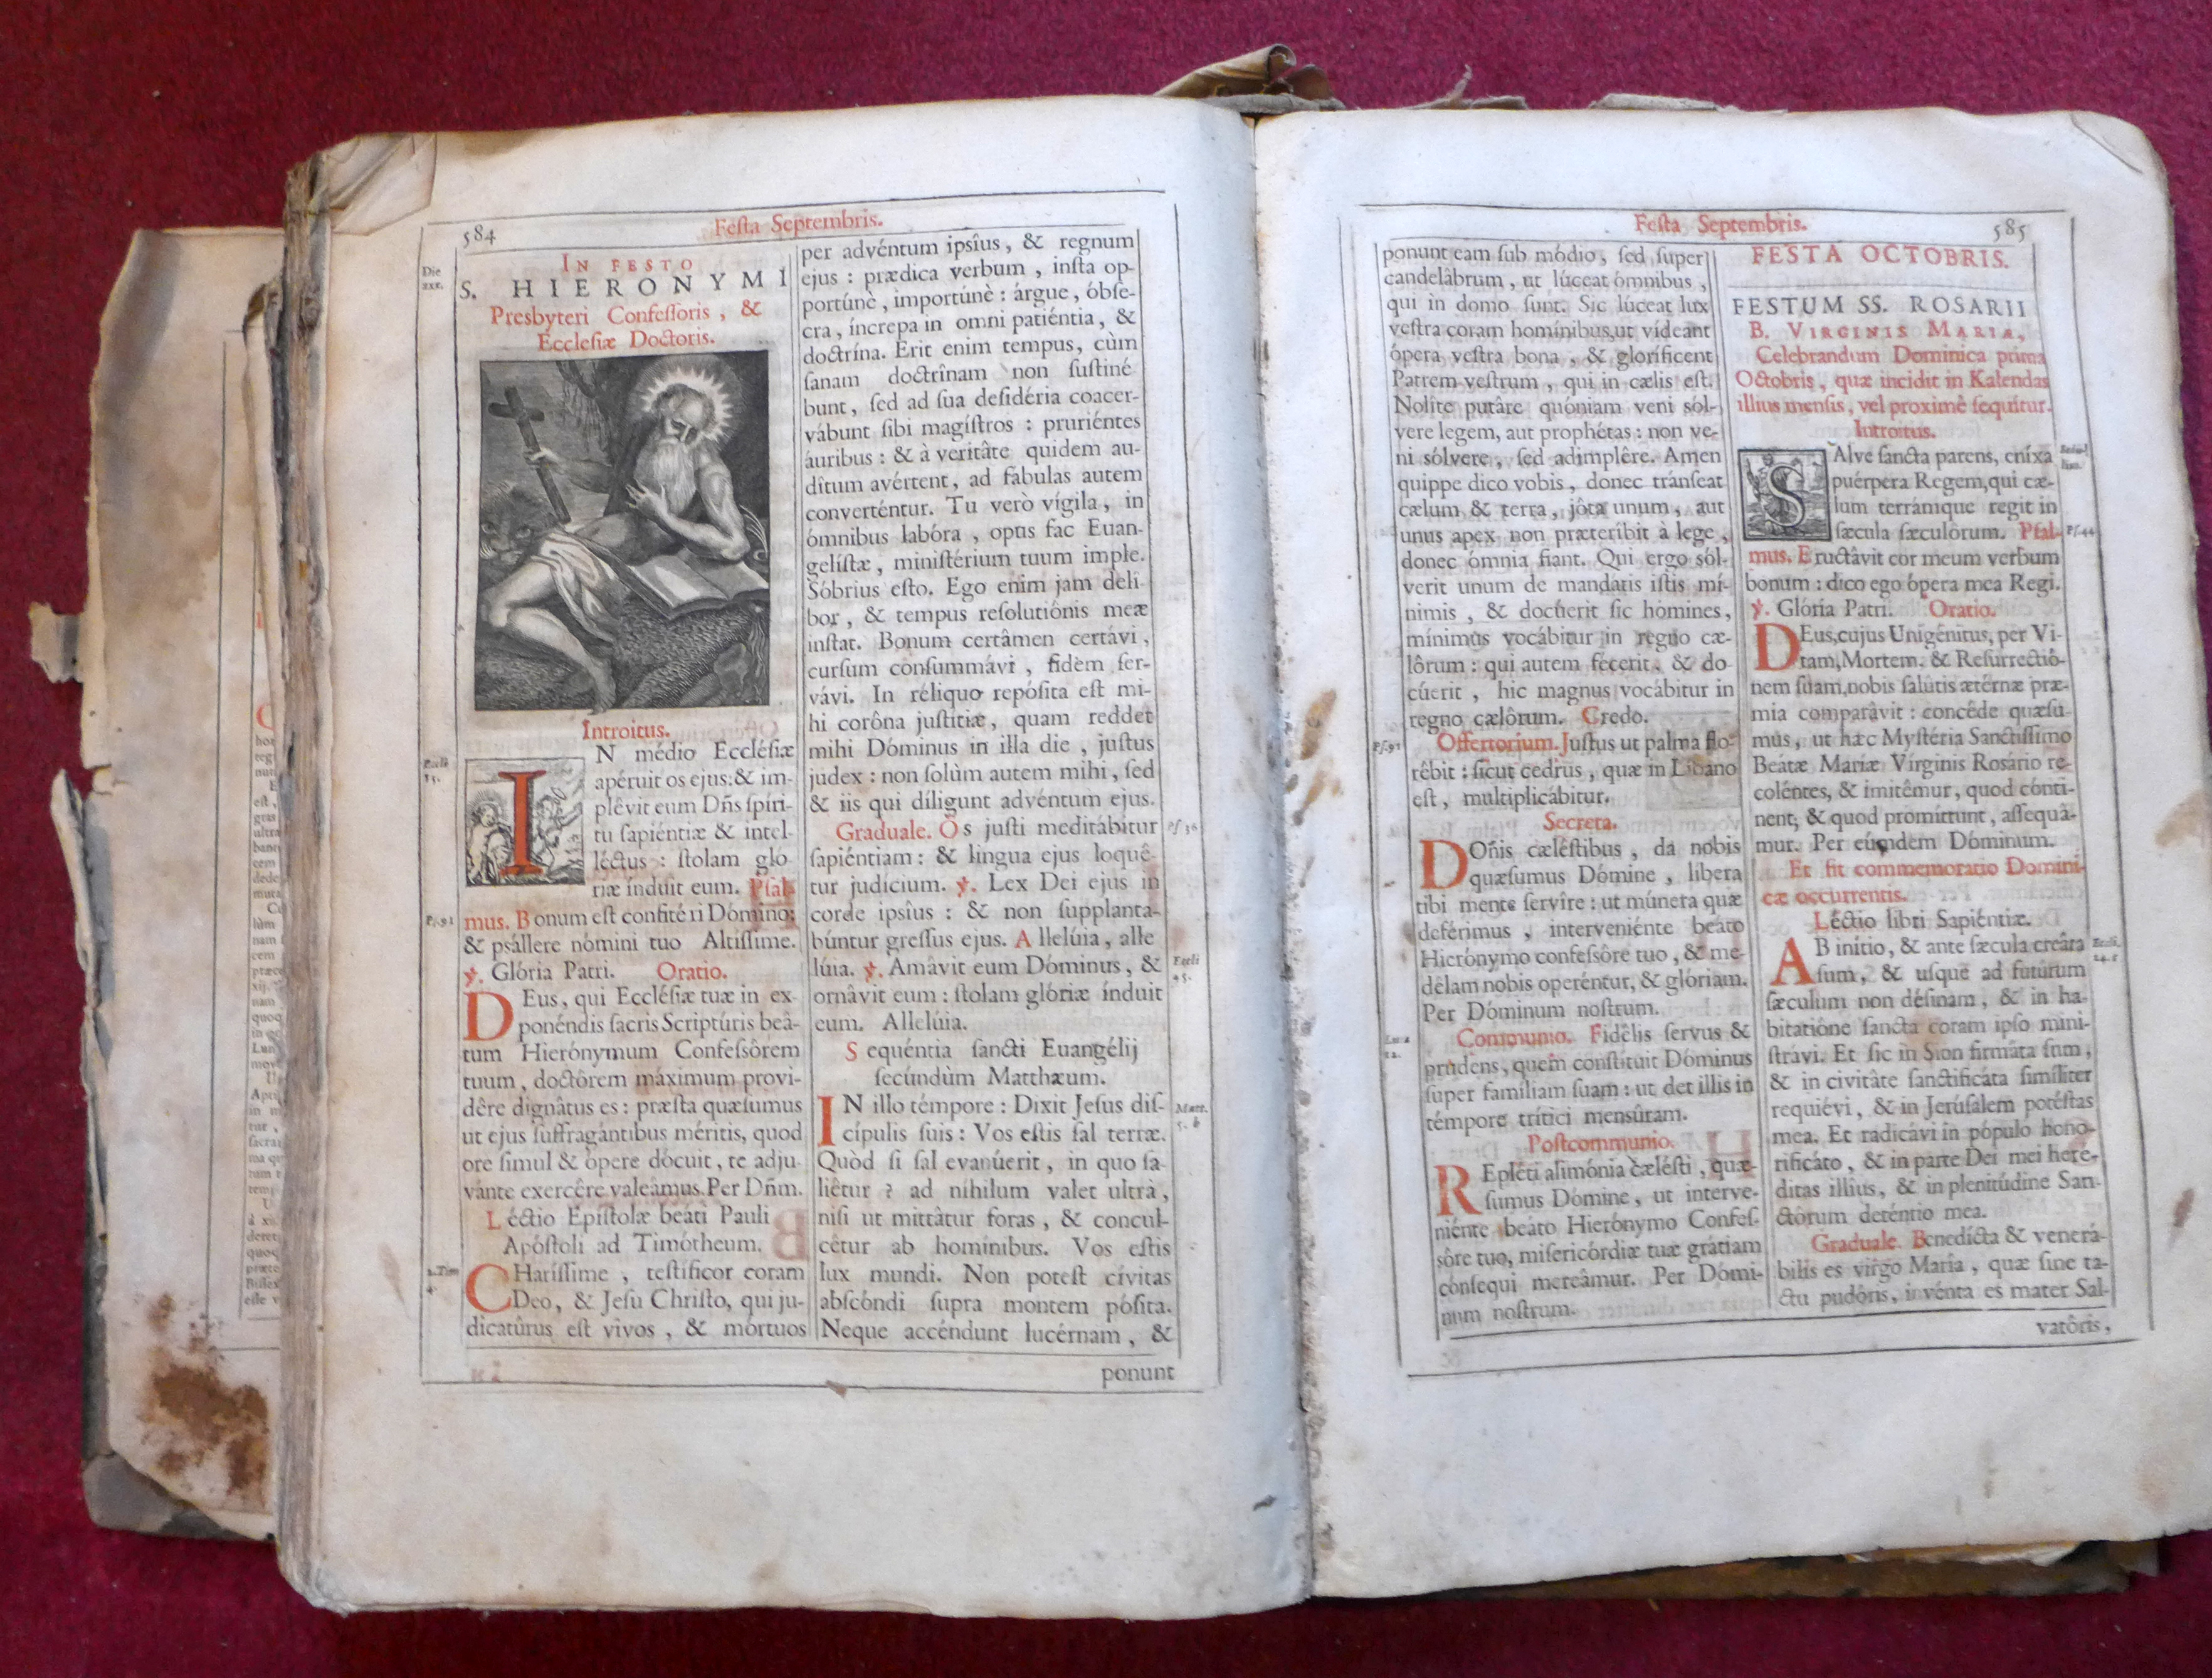 584
Festa Septembris.
Die
xxx.
IN FESTO
S. HIERONYMI
Presbyteri Confeſſoris, &
Eccleſiæ Doctoris.
Introitus.
Eccli
15.
IN médio Eccléſiæ
apéruit os ejus: & im-
plêvit eum Dñs ſpíri-
tu ſapiéntiæ & intel-
léctus : ſtolam glo
riæ índuit eum. Pſal-
Pſ.91
mus. Bonum eſt confitéri Dómino:
& pſállere nómini tuo Altíſſime.
℣. Glória Patri. Oratio.
DEus, qui Eccléſiæ tuæ in ex-
ponéndis ſacris Scriptúris beâ-
tum Hierónymum Confeſsôrem
tuum, doctôrem máximum provi-
dêre dignâtus es : præſta quæſumus
ut ejus ſuffragántibus méritis, quod
ore ſimul & ópere dócuit, te adju-
vánte exercêre valeâmus. Per Dñm.
Léctio Epíſtolæ beáti Pauli
Apóſtoli ad Timótheum.
2.Tim
4.
CHaríſſime, teſtíficor coram
Deo, & Jeſu Chriſto, qui ju-
dicatûrus eſt vivos, & mórtuos
per advéntum ipsîus, & regnum
ejus : prædica verbum, inſta op-
portúnè, importúnè : árgue, óbſe-
cra, íncrepa in omni patiéntia, &
doctrína. Erit enim tempus, cùm
ſanam doctrînam non ſuſtiné
bunt, ſed ad ſua deſidéria coacer-
vábunt ſibi magíſtros : pruriéntes
áuribus : & à veritâte quidem au-
dîtum avértent, ad fábulas autem
converténtur. Tu verò vígila, in
ómnibus labóra, opus fac Euan-
gelíſtæ, miniſtérium tuum imple.
Sóbrius eſto. Ego enim jam deli
bor, & tempus reſolutiónis meæ
inſtat. Bonum certâmen certávi,
curſum conſummávi, fidem ſer-
vávi. In réliquo repóſita eſt mi-
hi corôna juſtítiæ, quam reddet
mihi Dóminus in illa die, juſtus
judex : non ſolùm autem mihi, ſed
& iis qui díligunt advéntum ejus.
Graduale. Os juſti meditábitur
Pſ 36
ſapiéntiam : & lingua ejus loquê-
tur judícium. ℣. Lex Dei ejus in
corde ipsîus : & non ſupplanta-
búntur greſſus ejus. Allelúia, alle
lúia. ℣. Amâvit eum Dóminus, &
Eccli
45.
ornâvit eum : ſtolam glóriæ índuit
eum. Allelúia.
Sequéntia ſancti Euangélij
ſecúndùm Matthæum.
IN illo témpore : Dixit Jeſus diſ-
Matt.
5. b
cípulis ſuis : Vos eſtis ſal terræ.
Quòd ſi ſal evanúerit, in quo ſa-
liêtur ? ad níhilum valet ultrà,
niſi ut mittâtur foras, & concul-
cêtur ab homínibus. Vos eſtis
lux mundi. Non poteſt cívitas
abſcóndi ſupra montem póſita.
Neque accéndunt lucérnam, &
ponunt
Festa Septembris.
585
ponunt eam ſub módio, ſed ſuper
candelâbrum, ut lúceat ómnibus,
qui in domo ſunt. Sic lúceat lux
veſtra coram homínibus, ut vídeant
ópera veſtra bona, & gloríficent
Patrem veſtrum, qui in cælis eſt.
Nolîte putâre quóniam veni sól-
vere legem, aut prophétas : non ve-
ni sólvere, ſed adimplêre. Amen
quippe dico vobis, donec tránſeat
cælum & terra, jôta unum, aut
unus apex non præteríbit à lege,
donec ómnia fiant. Qui ergo sól-
verit unum de mandátis iſtis mí-
nimis, & docúerit ſic hómines,
mínimus vocábitur in regno cæ-
lôrum : qui autem fécerit, & do-
cúerit, hic magnus vocábitur in
regno cælôrum. Credo.
Pſ.91
Offertorium. Juſtus ut palma flo-
rêbit : ſicut cedrus, quæ in Líbano
eſt, multiplicábitur.
Secreta.
DOñis cæléſtibus, da nobis
quæſumus Dómine, líbera
tibi mente ſervíre : ut múnera quæ
deférimus, interveniénte beáto
Hierónymo confeſsôre tuo, & me-
dêlam nobis operéntur, & glóriam.
Per Dóminum noſtrum.
Lucæ
12.
Communio. Fidêlis ſervus &
prudens, quem conſtítuit Dóminus
ſuper famíliam ſuam : ut det illis in
témpore trítici menſûram.
Poſtcommunio.
REpléti alimónia cæléſti, quæ-
ſumus Dómine, ut interve-
niénte beáto Hierónymo Confeſ-
sôre tuo, miſericórdiæ tuæ grátiam
cónſequi mereâmur. Per Dómi-
num noſtrum.
FESTA OCTOBRIS.
FESTUM SS. ROSARII
B. VIRGINIS MARIÆ,
Celebrandum Dominica prima
Octobris, quæ incidit in Kalendas
illius menſis, vel proximè ſequitur.
Introitus.
SAlve ſancta parens, eníxa
puérpera Regem, qui cæ-
lum terrámque regit in
ſæcula ſæculôrum. Pſal-
Pſ.44
mus. Eructâvit cor meum verbum
bonum : dico ego ópera mea Regi.
℣. Glória Patri. Oratio.
DEus, cujus Unigénitus, per Vi-
tam, Mortem, & Reſurrectiô-
nem ſuam, nobis ſalûtis ætérnæ præ-
mia comparâvit : concéde quæſu-
mus, ut hæc Myſtéria Sanctíſſimo
Beátæ Maríæ Vírginis Roſário re-
coléntes, & imitêmur, quod cónti-
nent; & quod promíttunt, aſſequâ-
mur. Per eúmdem Dóminum.
Et fit commemoratio Domini-
cæ occurrentis.
Léctio libri Sapiéntiæ.
AB inítio, & ante ſæcula creâta
Eccli.
24.
ſum, & uſque ad futúrum
ſæculum non déſinam, & in ha-
bitatiône ſancta coram ipſo mini-
ſtrávi. Et ſic in Sion firmáta ſum,
& in civitâte ſanctificáta ſimíliter
requiévi, & in Jerúſalem potéſtas
mea. Et radicávi in pópulo hono-
rificáto, & in parte Dei mei heré-
ditas illíus, & in plenitúdine San-
ctôrum deténtio mea.
Graduale. Benedícta & venerá-
bilis es virgo María, quæ ſine ta-
ctu pudóris, invénta es mater Sal-
vatôris,